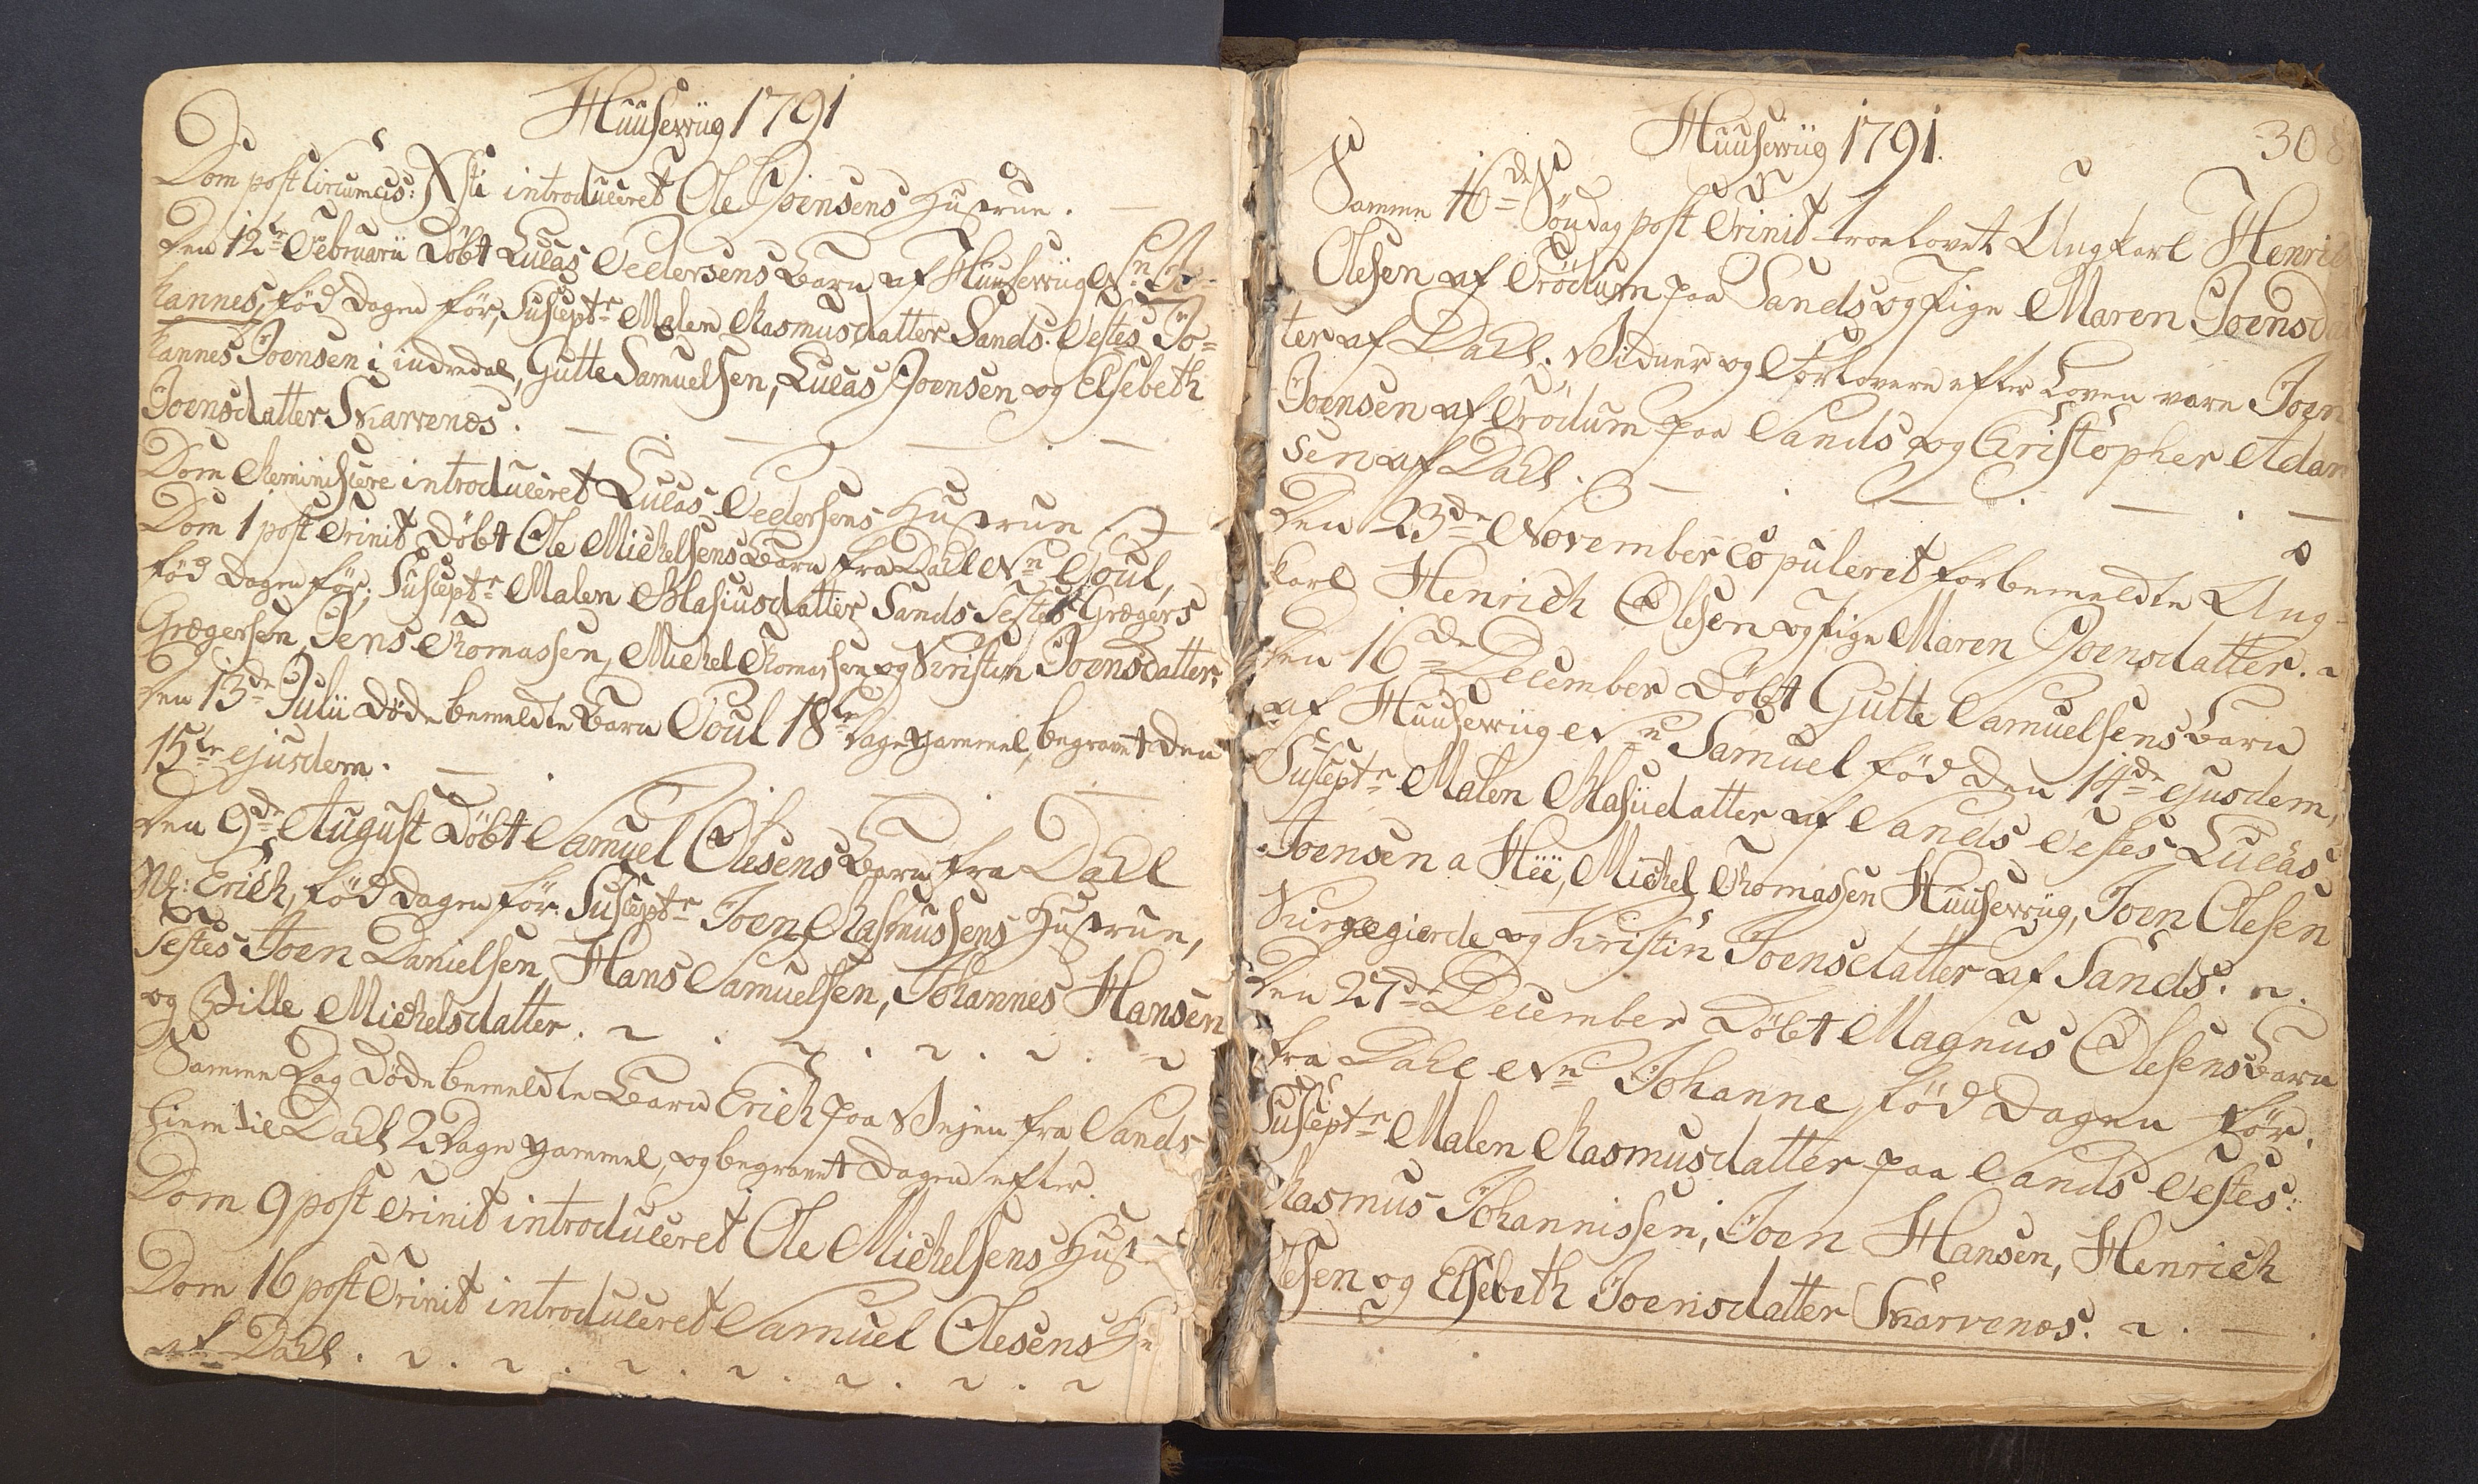 Huusewiig 1791
Dom post Circumcis: Xsti introduceret Ole Joensens Hustrue. —
Den 12te Februarii Döbt Lucas Pedersens Barn af Huusewiig Nn Jo-
hannes, föd dagen för, Suscept: Malen Rasmusdatter Sands. Testes Jo=
hannes Joensen i indredal, Gutte Samuelsen, Lucas Joensen og Elsebeth
Joensdatter Skarvenæs. — — — —
Dom Reminiscere introduceret Lucas Pedersens Hustrue
Dom 1 post Trinit Döbt Ole Michelsens Barn fra Dahl Nn Poul,
föd dagen för; Susceptr Malen Blasiusdatter Sands Testes Grægers
Grægersen, Jens Thomassen, Michel Thomassen og Kristin Joensdatter.
Den 13de Julii döde bemeldte Barn Poul 18te dage gammel, begravet den
15de ejusdem. —
Den 9de August Döbt Samuel Olesens Barn fra Dahl
Nl: Erich, föd dagen för. Susceptr Joen Rasmussens Hustrue,
Testes Joen Danielsen, Hans Samuelsen, Johannes Hansen
og Sille Michelsdatter.
Samme Dag döde bemeldte Barn Erich paa Vejen fra Sands
hiem til Dahl 2 Dage gammel, og begravet dagen efter.
Dom 9 post Trinit introduceret Ole Michelsens Hust
Dom 16 post Trinit introduceret Samuel Olesens Hu
af Dahl.
Huusewiig 1791.
308
Samme 16de Söndag post Trinit troelovet Ungkarl Henrich
Olesen af Trödum paa Sands og Pige Maren Joensdat
ter af Dahl. Vidner og Forlovere efter Loven vare Joen
Joensen af Trödum paa Sands og Christopher Adam
sen af Dahl.
Den 23de November copuleret forbemeldte Ung-
karl Henrich Olesen og Pige Maren Joensdatter.
Den 16de December Döbt Gutte Samuelsens Barn
af Huusewiig Nn Samuel föd den 14de ejusdem,
Susceptr Malen Blasiidatter af Sands Testes Lucas
Joensen a Heë, Michel Thomassen Huusewiig, Joen Olesen
Kirgegiærde og Kristin Joensdatter af Sands.
Den 27de December Döbt Magnus Olesens Barn
fra Dahl Nn Johanne, föd dagen för.
Susceptr Malen Rasmusdatter paa Sands Testes:
Rasmus Johannissen, Joen Hansen, Henrich
Olesen og Elsebeth Joensdatter Skarvenæs.